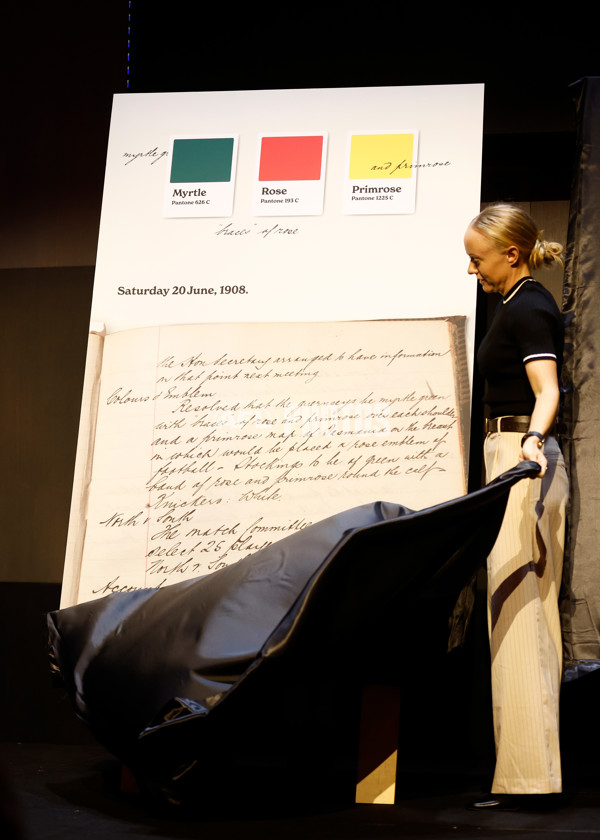 myrtle gr
and primrose
Myrtle
Pantone 626 C
Rose
Pantone 193 C
Primrose
Pantone 1225 C
'braces' of rose
Saturday 20 June, 1908.
the Hon Secretary arranged to have information
on that point next meeting
Colours & Emblem
Resolved that the guernseys be myrtle green
with 'braces' of rose and primrose over each shoulder
and a primrose map of Tasmania on the breast
in which would be placed a rose emblem of
football - Stockings to be of green with a
band of rose and primrose round the calf -
Knickers: White.
North v South
The match Committee
select 25 players
North v. Sou
Accoun